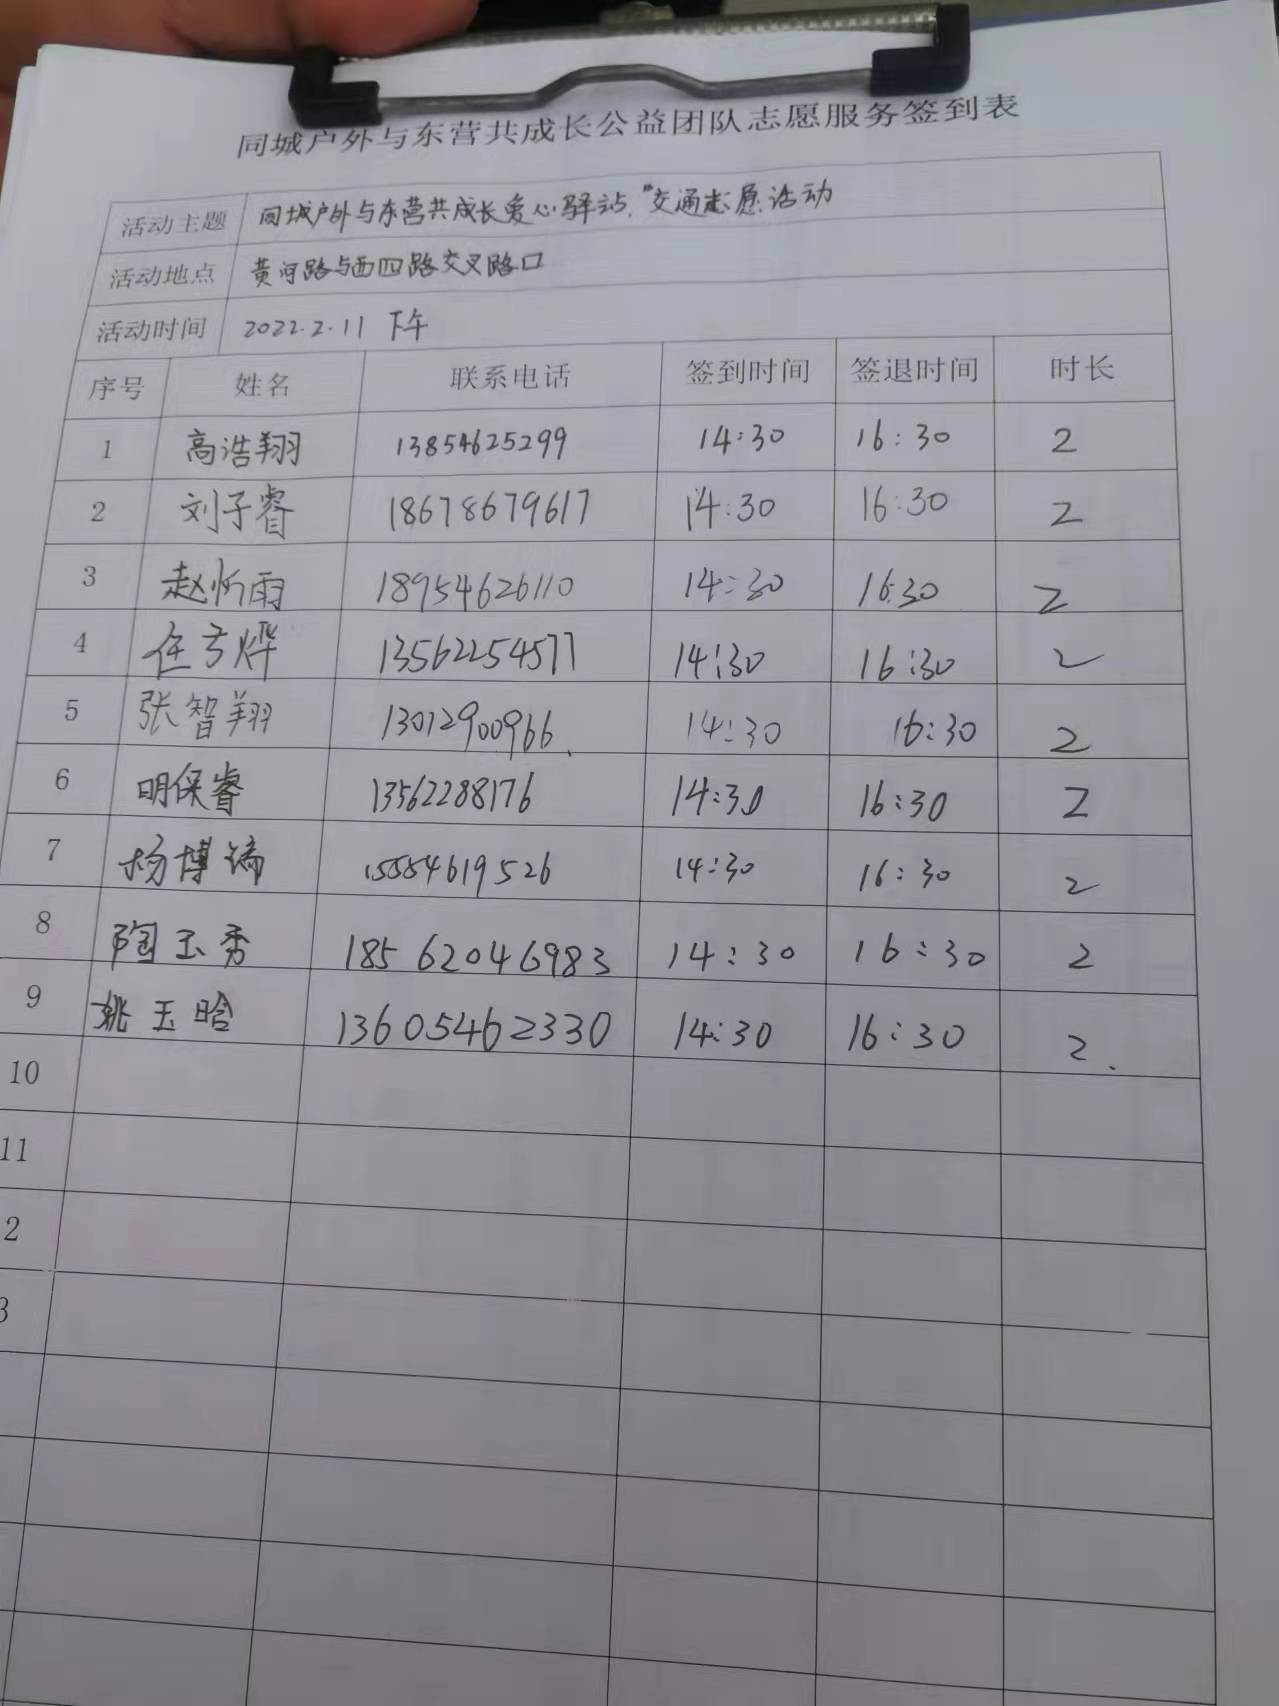 同城户外与东营共成长公益团队志愿服务签到表
活动主题 同城户外与东营共成长爱心驿站."交通志愿活动
活动地点 黄河路与西四路交叉路口
活动时间 2022.2.11 下午
序号 姓名 联系电话 签到时间 签退时间 时长
1 高浩翔 13854625299 14:30 16:30 2
2 刘子睿 18678679617 14:30 16:30 2
3 赵忻雨 18954626110 14:30 16:30 2
4 任方烨 13562254577 14:30 16:30 2
5 张智翔 13012900966 14:30 16:30 2
6 明保睿 13562288176 14:30 16:30 2
7 杨博 15554619526 14:30 16:30 2
8 陶玉秀 18562046983 14:30 16:30 2
9 姚玉晗 13605462330 14:30 16:30 2
10
11
2
3